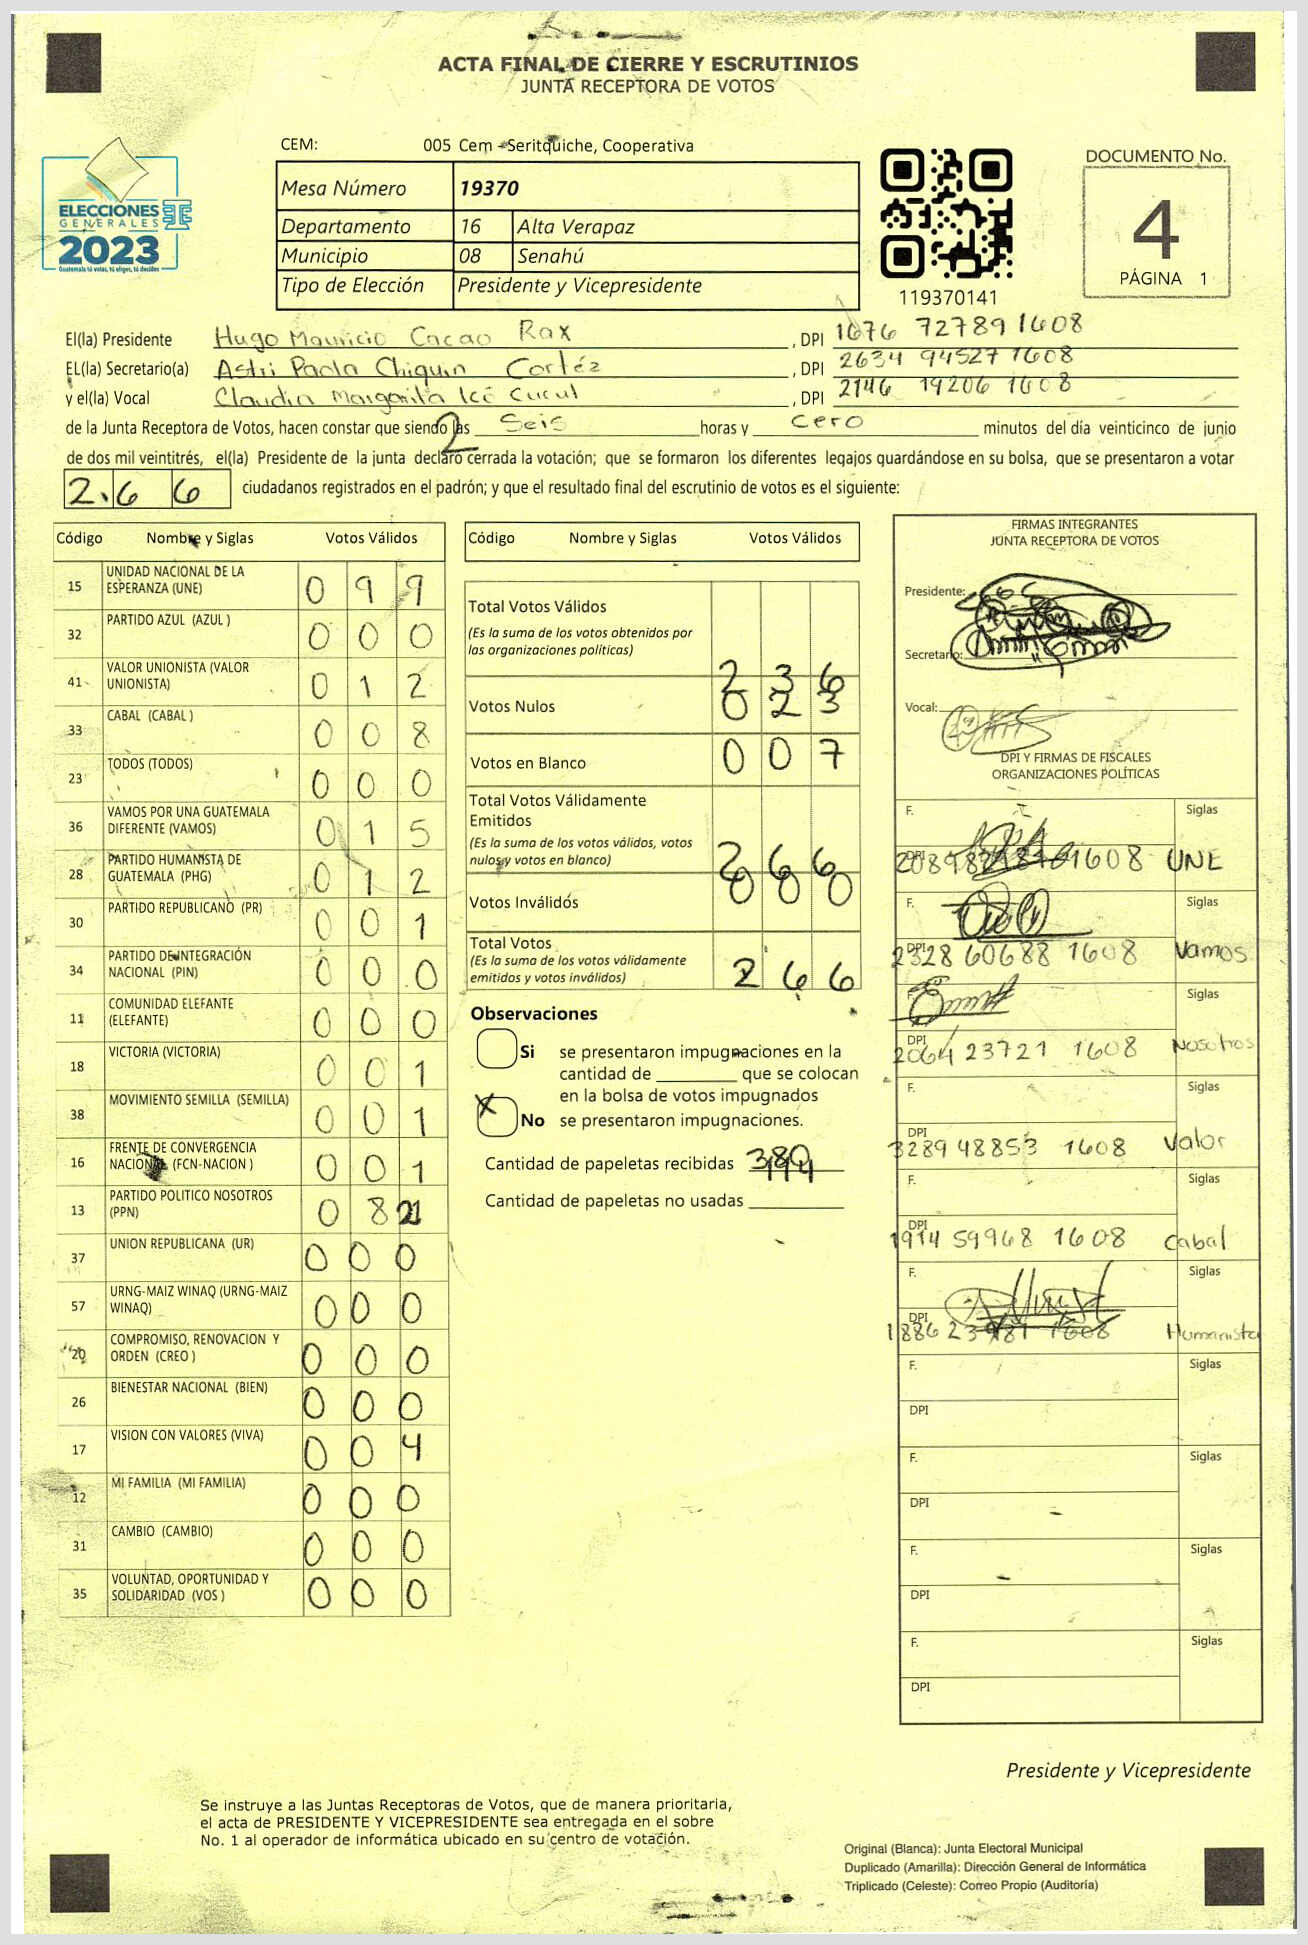 ACTA FINAL DE CIERRE Y ESCRUTINIOS
JUNTA RECEPTORA DE VOTOS
ELECCIONES
GENERALES
2023
Guatemala tú votas, tú eliges, tú decides
CEM: 005 Cem - Seritquiche, Cooperativa
Mesa Número 19370
Departamento 16 Alta Verapaz
Municipio 08 Senahú
Tipo de Elección Presidente y Vicepresidente
119370141
DOCUMENTO No.
4
PÁGINA 1
El(la) Presidente Hugo Mauricio Cacao Rax , DPI 1676 72789 1608
EL(la) Secretario(a) Astri Paola Chiquin Cortéz , DPI 2634 94527 1608
y el(la) Vocal Claudia Margarita Icó Cucul , DPI 2146 19206 1608
de la Junta Receptora de Votos, hacen constar que siendo las Seis horas y cero minutos del día veinticinco de junio
de dos mil veintitrés, el(la) Presidente de la junta declaró cerrada la votación; que se formaron los diferentes legajos guardándose en su bolsa, que se presentaron a votar
2 6 6 ciudadanos registrados en el padrón; y que el resultado final del escrutinio de votos es el siguiente:
Código Nombre y Siglas Votos Válidos
15 UNIDAD NACIONAL DE LA ESPERANZA (UNE) 0 9 9
32 PARTIDO AZUL (AZUL ) 0 0 0
41 VALOR UNIONISTA (VALOR UNIONISTA) 0 1 2
33 CABAL (CABAL ) 0 0 8
23 TODOS (TODOS) 0 0 0
36 VAMOS POR UNA GUATEMALA DIFERENTE (VAMOS) 0 1 5
28 PARTIDO HUMANISTA DE GUATEMALA (PHG) 0 1 2
30 PARTIDO REPUBLICANO (PR) 0 0 1
34 PARTIDO DE INTEGRACIÓN NACIONAL (PIN) 0 0 0
11 COMUNIDAD ELEFANTE (ELEFANTE) 0 0 0
18 VICTORIA (VICTORIA) 0 0 1
38 MOVIMIENTO SEMILLA (SEMILLA) 0 0 1
16 FRENTE DE CONVERGENCIA NACIONAL (FCN-NACION ) 0 0 1
13 PARTIDO POLITICO NOSOTROS (PPN) 0 8
37 UNION REPUBLICANA (UR) 0 0 0
57 URNG-MAIZ WINAQ (URNG-MAIZ WINAQ) 0 0 0
20 COMPROMISO, RENOVACION Y ORDEN (CREO ) 0 0 0
26 BIENESTAR NACIONAL (BIEN) 0 0 0
17 VISION CON VALORES (VIVA) 0 0 4
12 MI FAMILIA (MI FAMILIA) 0 0 0
31 CAMBIO (CAMBIO) 0 0 0
35 VOLUNTAD, OPORTUNIDAD Y SOLIDARIDAD (VOS ) 0 0 0
Código Nombre y Siglas Votos Válidos
Total Votos Válidos
(Es la suma de los votos obtenidos por
las organizaciones políticas)
2 3 6
Votos Nulos 0 2 3
Votos en Blanco 0 0 7
Total Votos Válidamente
Emitidos
(Es la suma de los votos válidos, votos
nulos y votos en blanco)
2 6 6
Votos Inválidos 0 0 0
Total Votos
(Es la suma de los votos válidamente
emitidos y votos inválidos)
2 6 6
Observaciones
Si se presentaron impugnaciones en la
cantidad de ________ que se colocan
en la bolsa de votos impugnados
X No se presentaron impugnaciones.
Cantidad de papeletas recibidas
Cantidad de papeletas no usadas
FIRMAS INTEGRANTES
JUNTA RECEPTORA DE VOTOS
Presidente:
Secretario:
Vocal:
DPI Y FIRMAS DE FISCALES
ORGANIZACIONES POLÍTICAS
F. Siglas
DPI 1608 UNE
F. Siglas
DPI 2328 60688 1608 Vamos
F. Siglas
DPI 2064 23721 1608 Nosotros
F. Siglas
DPI 3289 48853 1608 Valor
F. Siglas
DPI 1914 59968 1608 Cabal
F. Siglas
DPI 1608 Humanista
F. Siglas
DPI
F. Siglas
DPI
F. Siglas
DPI
F. Siglas
DPI
Presidente y Vicepresidente
Se instruye a las Juntas Receptoras de Votos, que de manera prioritaria,
el acta de PRESIDENTE Y VICEPRESIDENTE sea entregada en el sobre
No. 1 al operador de informática ubicado en su centro de votación.
Original (Blanca): Junta Electoral Municipal
Duplicado (Amarilla): Dirección General de Informática
Triplicado (Celeste): Correo Propio (Auditoría)